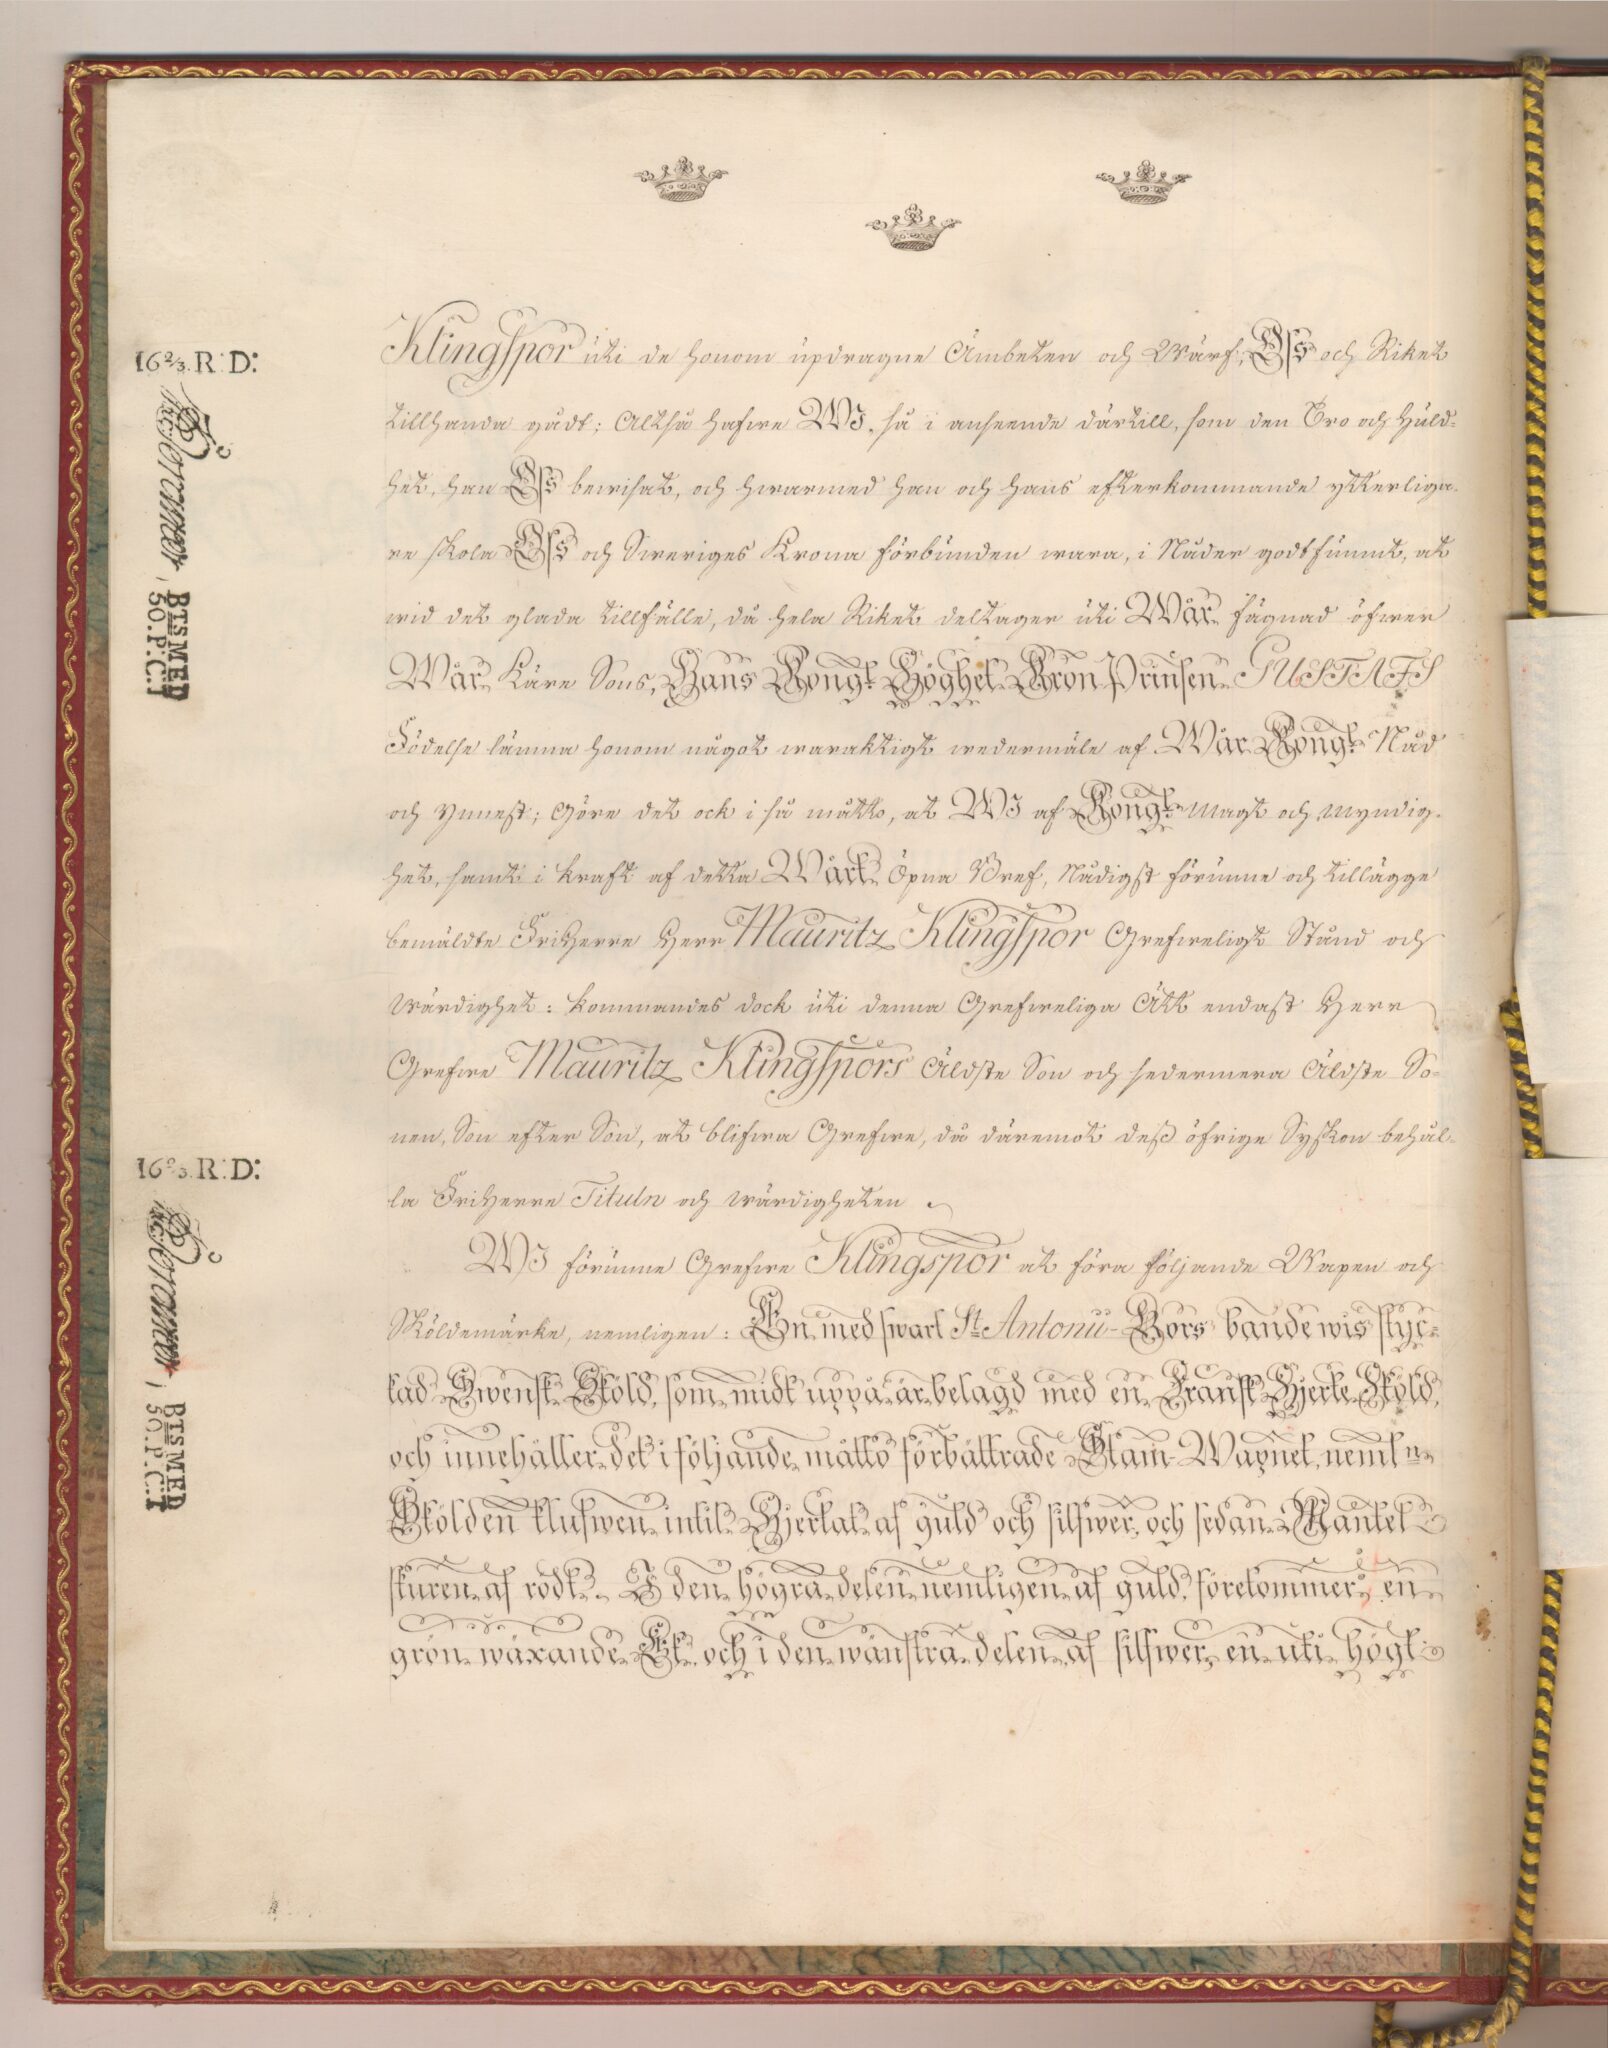 16 2/3. R: D:
BTSMED
50. P. C.T
16 2/3. R: D:
BTSMED
50. P. C.T
Klingspor uti de honom updragne Ämbeten och Wärf, Oss och Riket
tillhanda gådt; Altså hafwe WJ, så i anseende därtill, som den Tro och Huld-
het, han Oss bewisat, och hwarmed han och hans efterkommande ytterliga-
re skola Oss och Sweriges Krona förbunden wara, i Nåder godtfunnit, at
wid det glada tillfälle, då hela Riket deltager uti Wår fägnad öfwer
Wår Käre Sons, Hans Kongl. Höghet Kron Prinsen GUSTAFS
Födelse lämna honom något waraktigt wedermäle af Wår Kongl. Nåd
och Ynnest; Göre det ock i så måtto, at WJ af Kongl. Magt och Myndig-
het, samt i kraft af detta Wårt Öpna Bref, Nådigst förunne och tillägge
bemäldte FriHerre Herr Mauritz Klingspor Grefweligt Stånd och
Wärdighet: kommandes dock uti denna Grefweliga Ätt endast Herr
Grefwe Mauritz Klingspors Äldste Son och sedermera Äldste So-
nen, Son efter Son, at blifwa Grefwe, då däremot deß öfrige Syskon behål-
la FriHerre Tituln och wärdigheten.
WJ förunne Grefwe Klingspor at föra följande Wapen och
Sköldemärke, nemligen: En med swart St. Antonii-Kors bandewis styc-
kad Swensk Sköld, som midt uppå är belagd med en Fransk Hjerte Sköld,
och innehåller det i följande måtto förbättrade Stam-Wapnet, neml:n
Skölden klufwen intil Hjertat af guld och silfwer, och sedan Mantel-
skuren af rödt. I den högra delen nemligen af guld, förekommer en
grön wäxande Ek, och i den wänstra delen, af silfwer, en uti högt